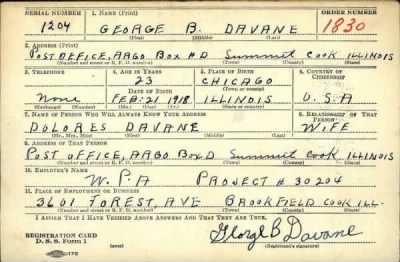 SERIAL NUMBER 1. NAME (Print) ORDER NUMBER
1204 GEORGE B. DAVANE 1830
(First) (Middle) (Last)
2. ADDRESS (Print)
POST OFFICE, ARGO BOX #D Summit COOK ILLINOIS
(Number and street or R. F. D. number) (Town) (County) (State)
3. TELEPHONE 4. AGE IN YEARS 5. PLACE OF BIRTH 6. COUNTRY OF CITIZENSHIP
23 CHICAGO
DATE OF BIRTH (Town or county)
None FEB. 21, 1918 ILLINOIS U.S.A
(Exchange) (Number) (Mo.) (Day) (Yr.) (State or country)
7. NAME OF PERSON WHO WILL ALWAYS KNOW YOUR ADDRESS 8. RELATIONSHIP OF THAT PERSON
DOLORES DAVANE WIFE
(Mr., Mrs., Miss) (First) (Middle) (Last)
9. ADDRESS OF THAT PERSON
POST OFFICE, ARGO BOX D Summit COOK ILLINOIS
(Number and street or R. F. D. number) (Town) (County) (State)
10. EMPLOYER'S NAME
W.P.A PROJECT # 30204
11. PLACE OF EMPLOYMENT OR BUSINESS
3601 FOREST, AVE BROOKFIELD COOK ILL.
(Number and street or R. F. D. number) (Town) (County) (State)
I AFFIRM THAT I HAVE VERIFIED ABOVE ANSWERS AND THAT THEY ARE TRUE.
REGISTRATION CARD
D. S. S. Form 1 (over) George B Davane
(Registrant's signature)